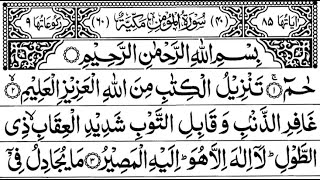 اٰیاتها ۸۵ (۴۰) سُوْرَةُ الْمُؤْمِنِ مَكِّيَّةٌ (۶۰) رکوعاتها ۹
بِسْمِ اللّٰهِ الرَّحْمٰنِ الرَّحِيْمِ
حٰمٓ ۚ‏﴿۱﴾ تَنْزِيْلُ الْكِتٰبِ مِنَ اللّٰهِ الْعَزِيْزِ الْعَلِيْمِ ۙ‏﴿۲﴾
غَافِرِ الذَّنْۢبِ وَ قَابِلِ التَّوْبِ شَدِيْدِ الْعِقَابِ ۙ ذِى
الطَّوْلِ ؕ لَاۤ اِلٰهَ اِلَّا هُوَ ؕ اِلَيْهِ الْمَصِيْرُ ‏﴿۳﴾ مَا يُجَادِلُ فِىْۤ